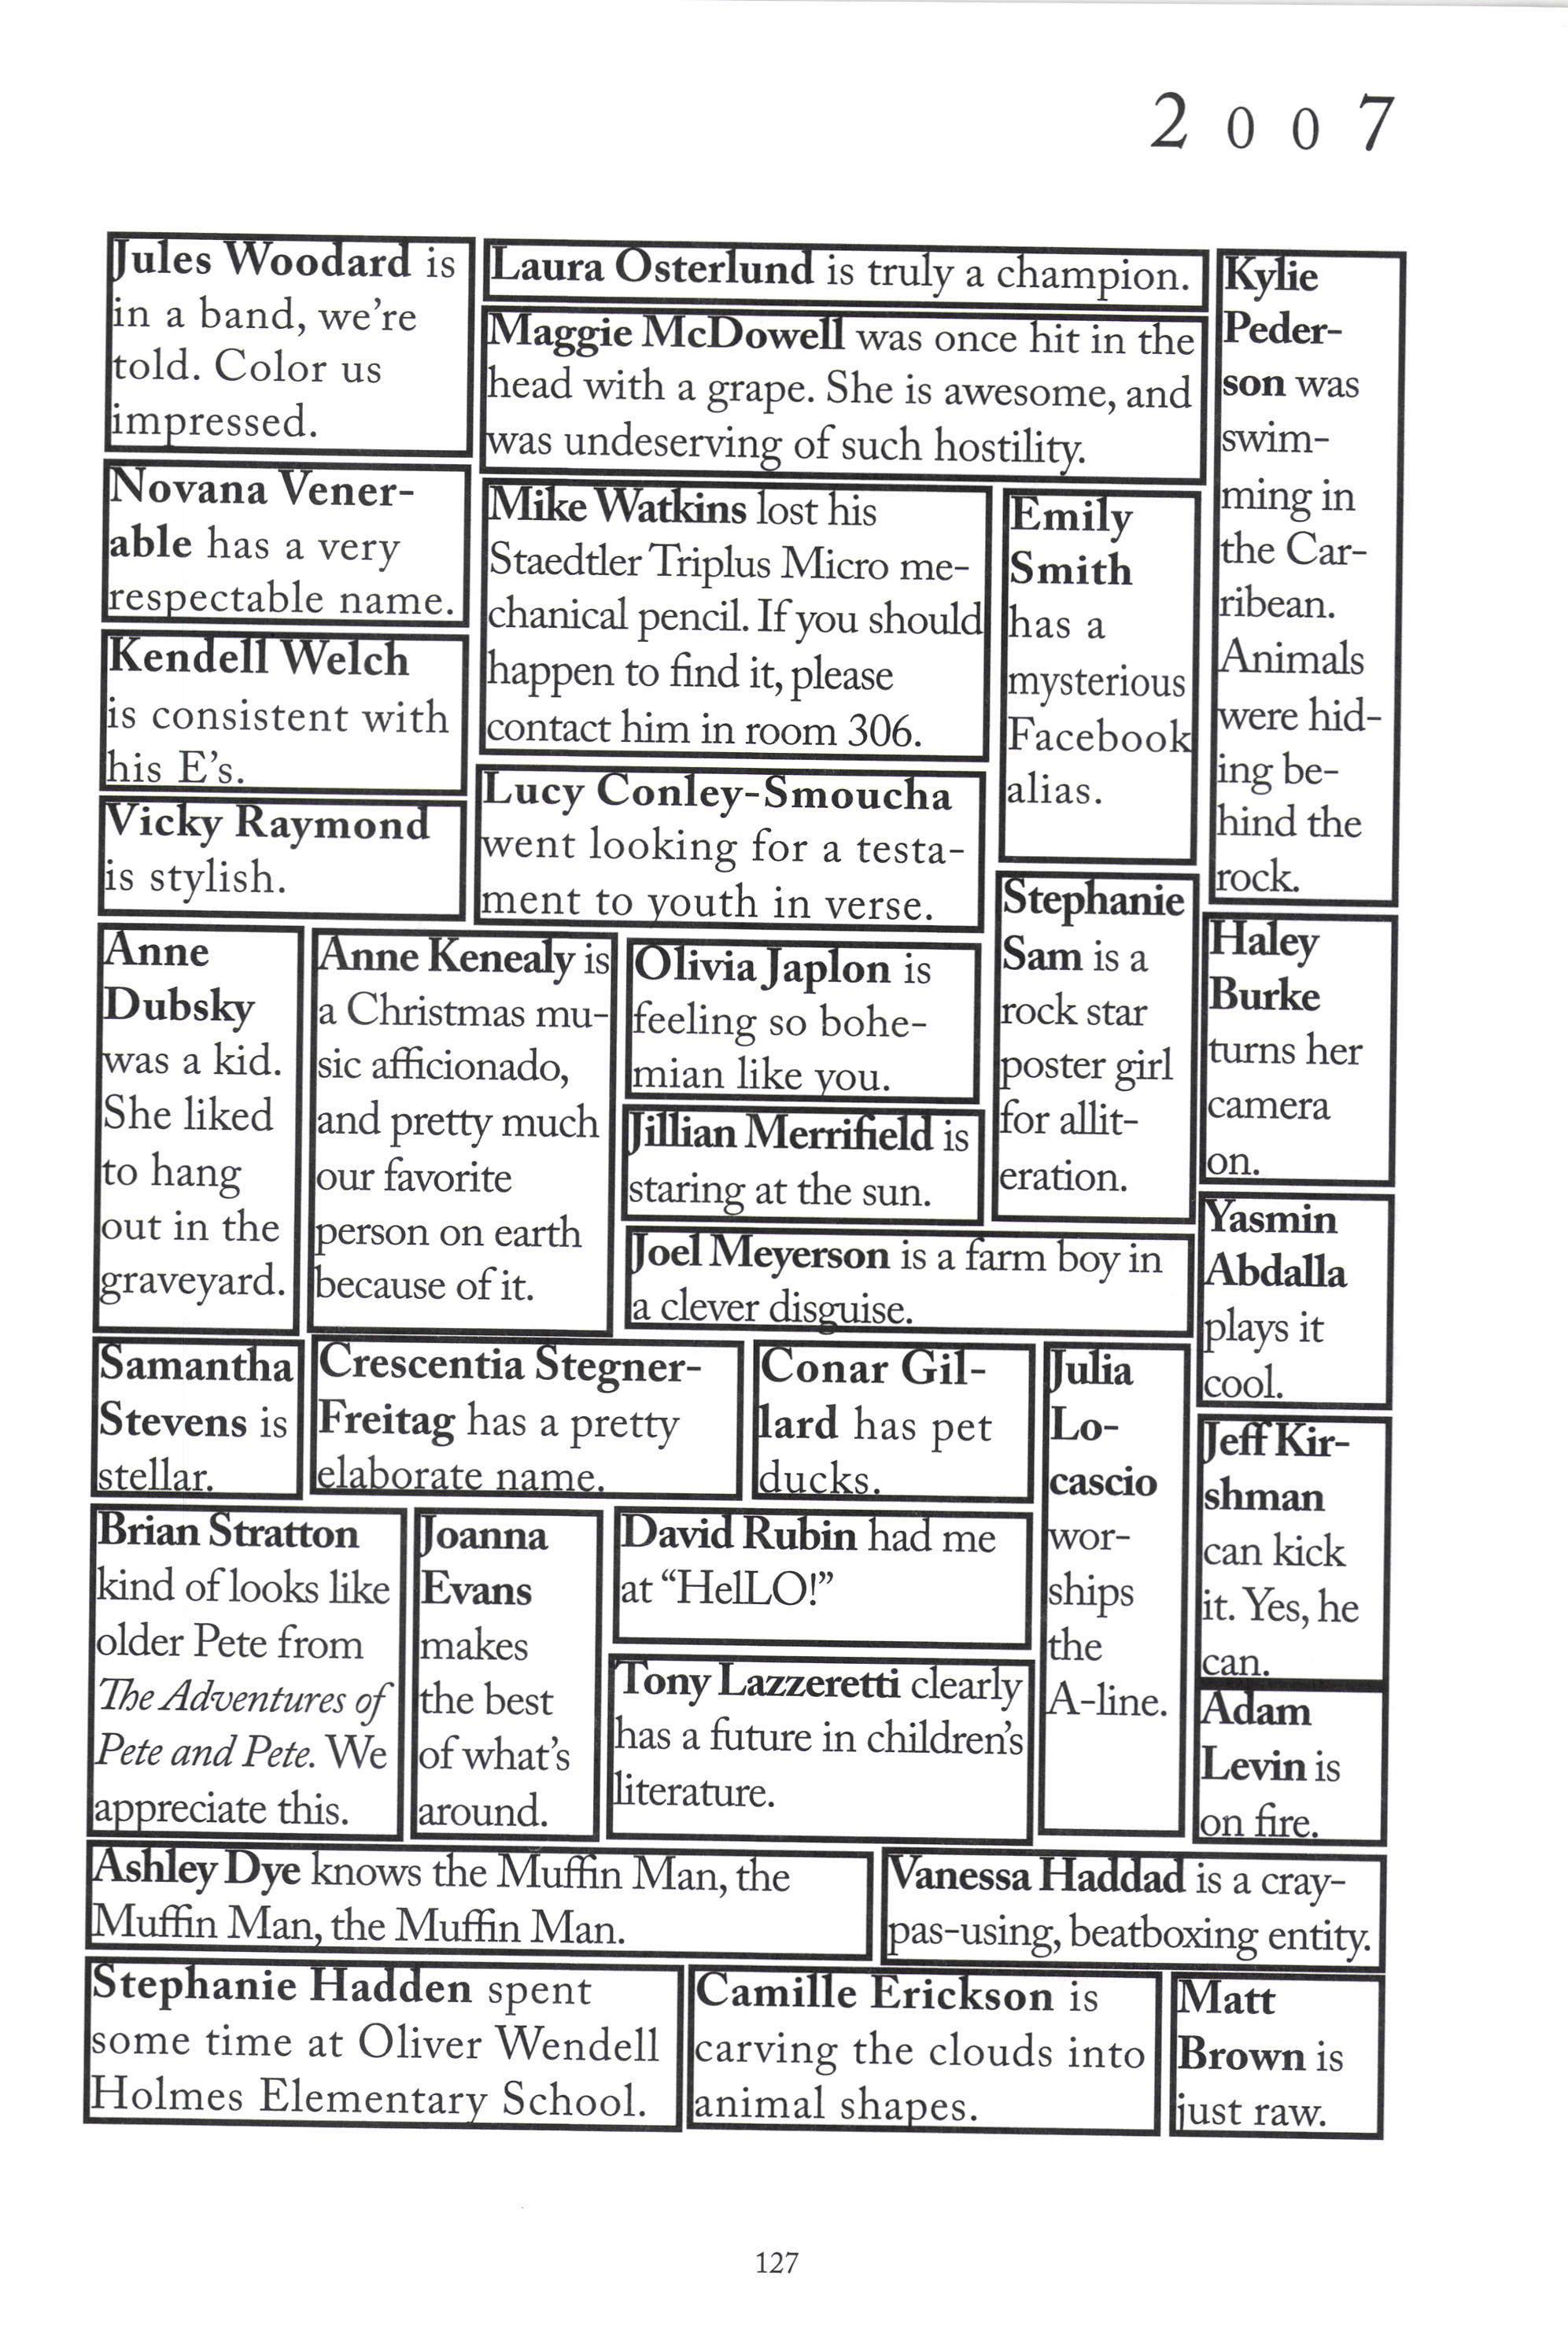 2 0 0 7
Jules Woodard is
in a band, we're
told. Color us
impressed.
Laura Osterlund is truly a champion.
Maggie McDowell was once hit in the
head with a grape. She is awesome, and
was undeserving of such hostility.
Kylie
Peder-
son was
swim-
ming in
the Car-
ribean.
Animals
were hid-
ing be-
hind the
rock.
Novana Vener-
able has a very
respectable name.
Mike Watkins lost his
Staedtler Triplus Micro me-
chanical pencil. If you should
happen to find it, please
contact him in room 306.
Emily
Smith
has a
mysterious
Facebook
alias.
Kendell Welch
is consistent with
his E's.
Lucy Conley-Smoucha
went looking for a testa-
ment to youth in verse.
Vicky Raymond
is stylish.
Stephanie
Sam is a
rock star
poster girl
for allit-
eration.
Haley
Burke
turns her
camera
on.
Anne
Dubsky
was a kid.
She liked
to hang
out in the
graveyard.
Anne Kenealy is
a Christmas mu-
sic afficionado,
and pretty much
our favorite
person on earth
because of it.
Olivia Japlon is
feeling so bohe-
mian like you.
Jillian Merrifield is
staring at the sun.
Joel Meyerson is a farm boy in
a clever disguise.
Yasmin
Abdalla
plays it
cool.
Samantha
Stevens is
stellar.
Crescentia Stegner-
Freitag has a pretty
elaborate name.
Conar Gil-
lard has pet
ducks.
Julia
Lo-
cascio
wor-
ships
the
A-line.
Jeff Kir-
shman
can kick
it. Yes, he
can.
Brian Stratton
kind of looks like
older Pete from
The Adventures of
Pete and Pete. We
appreciate this.
Joanna
Evans
makes
the best
of what's
around.
David Rubin had me
at “HelLO!”
Tony Lazzeretti clearly
has a future in children's
literature.
Adam
Levin is
on fire.
Ashley Dye knows the Muffin Man, the
Muffin Man, the Muffin Man.
Vanessa Haddad is a cray-
pas-using, beatboxing entity.
Stephanie Hadden spent
some time at Oliver Wendell
Holmes Elementary School.
Camille Erickson is
carving the clouds into
animal shapes.
Matt
Brown is
just raw.
127